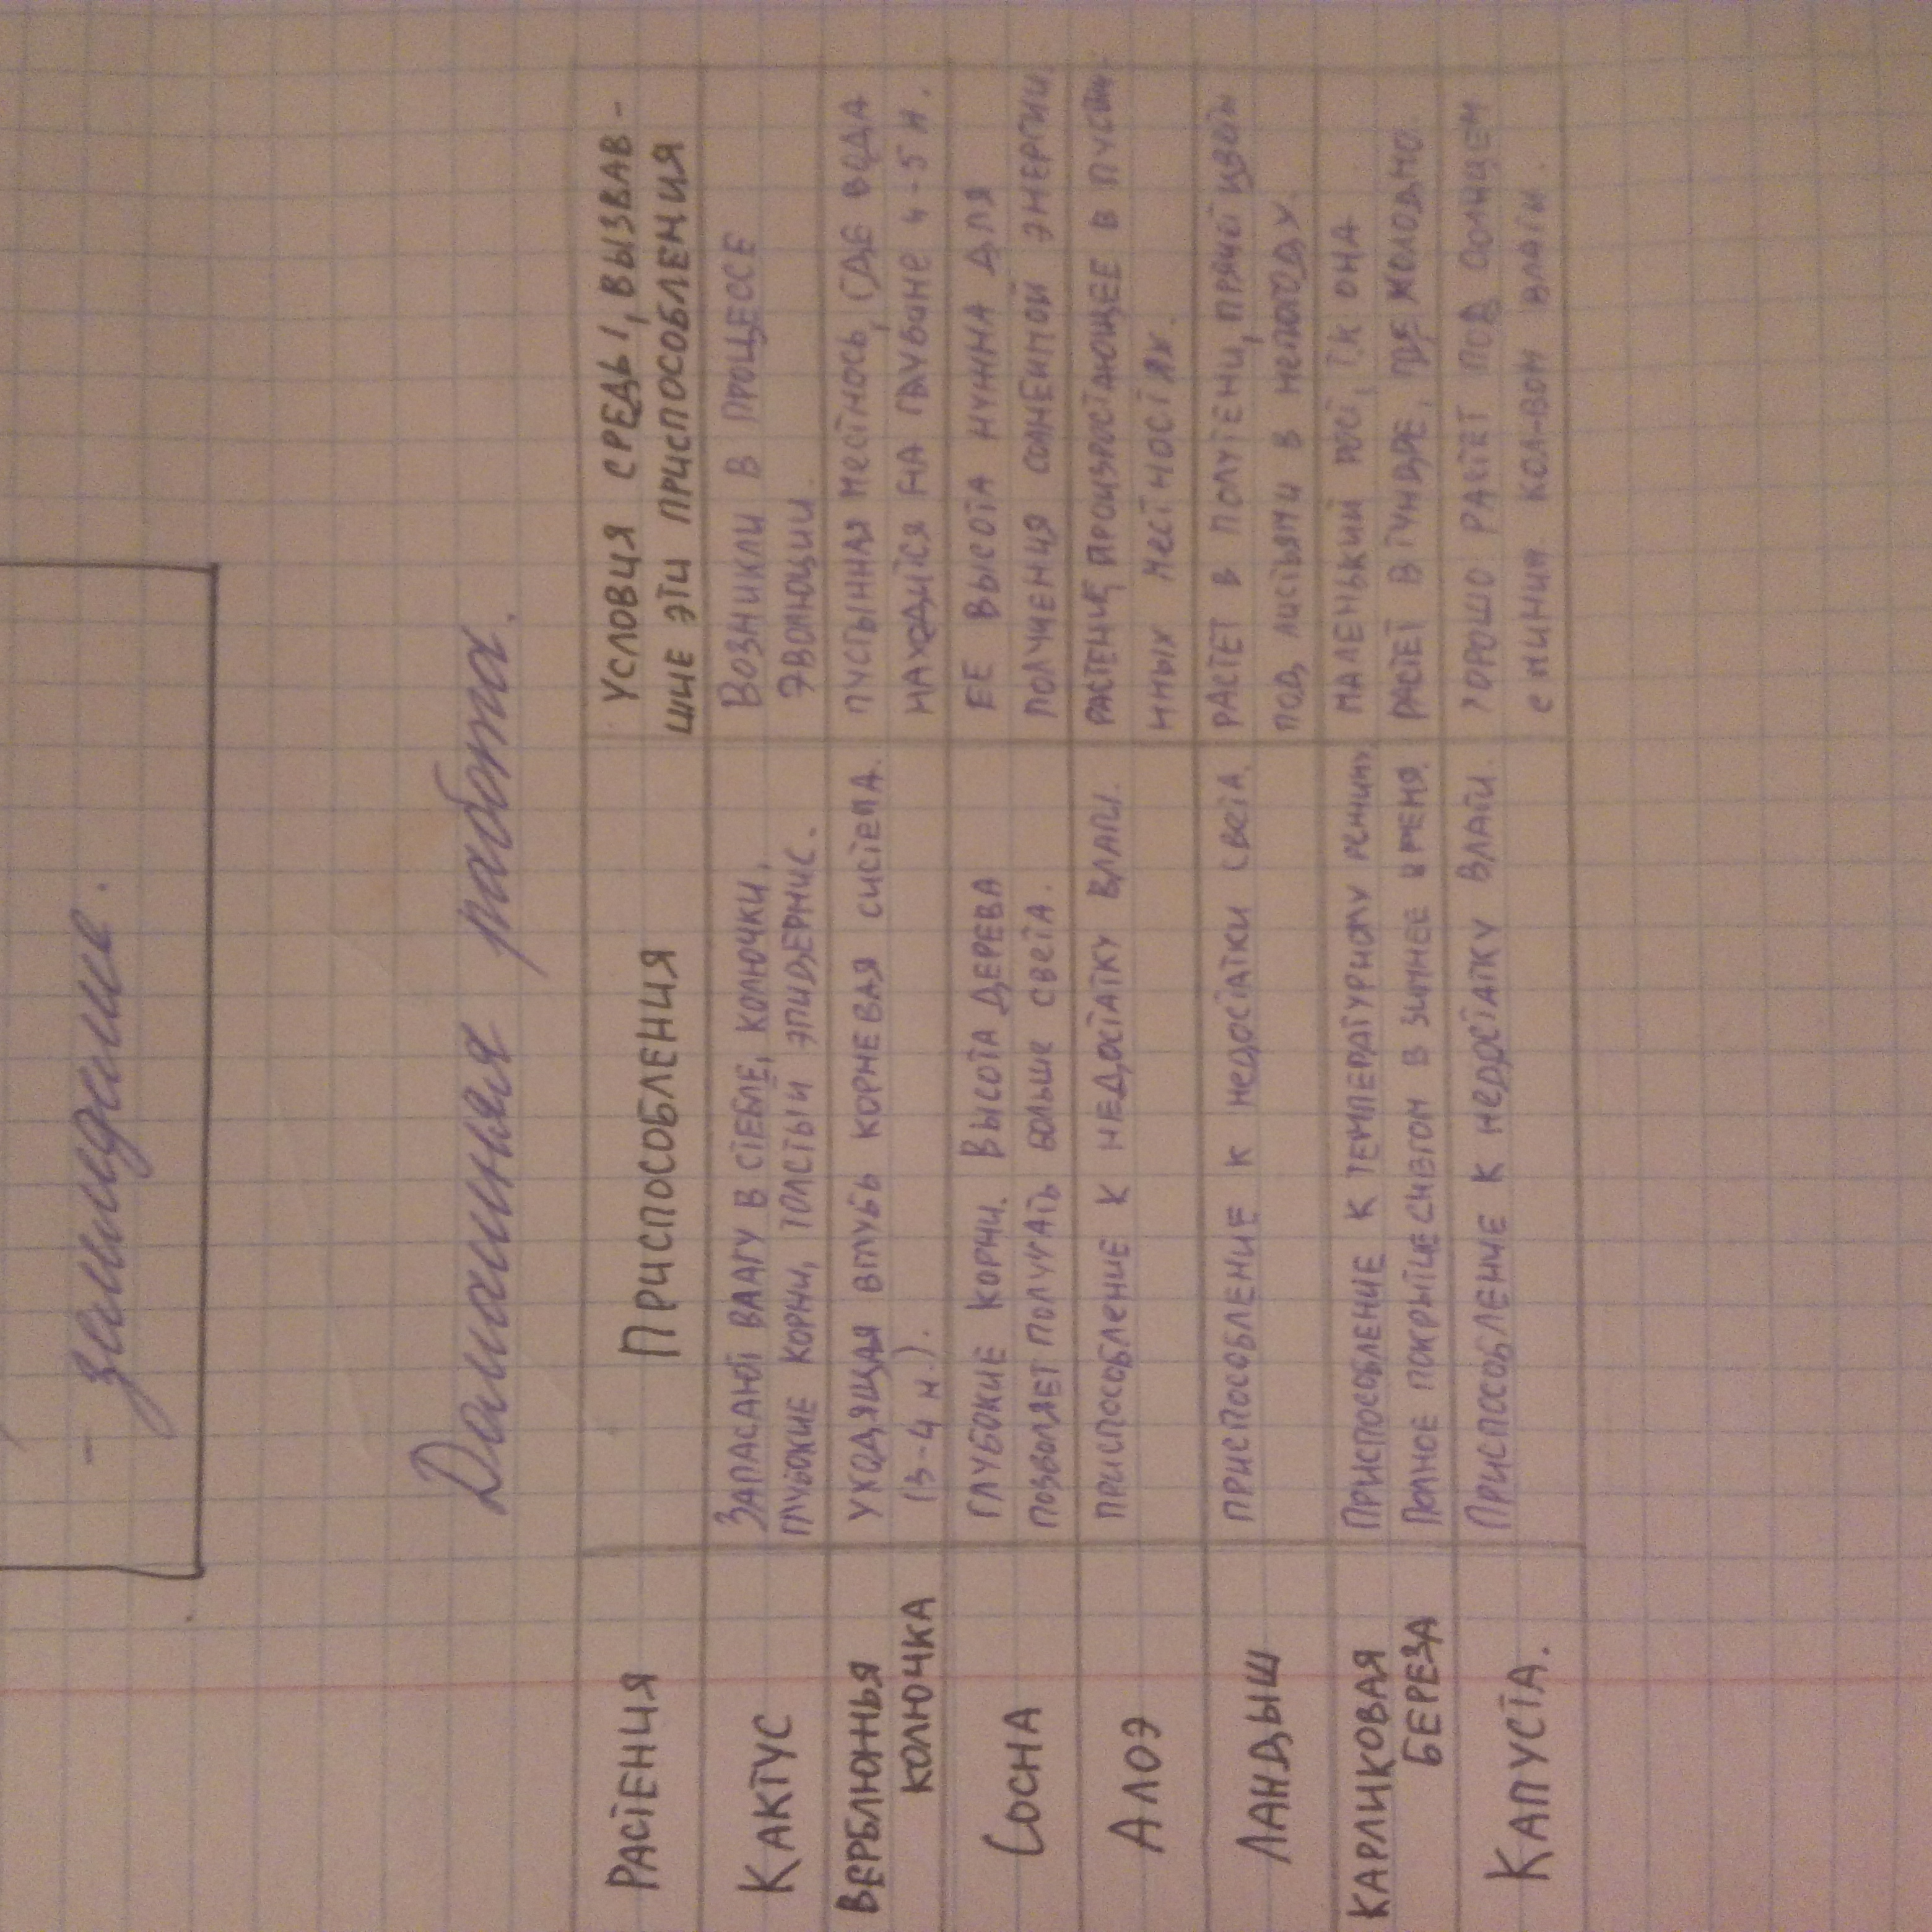 - эпидемие.
Домашняя работа.
Растения
Приспособления
Условия среды, вызвав-
шие эти приспособления
Кактус
Запасают влагу в стебле, колючки,
глубокие корни, толстый эпидермис.
Возникли в процессе
эволюции.
Верблюжья
колючка
уходящая вглубь корневая система.
(3-4 м.).
пустынная местнось, где вода
находится на глубине 4-5 м.
Сосна
глубокие корни. Высота дерева
позволяет получать больше света.
ее высота нужна для
получения солнечной энергии.
Алоэ
приспособление к недостатку влаги.
растение, произростающее в пусты-
нных местностях.
Ландыш
приспособление к недостатки света.
растет в полутени, прячет цветы
под листьями в непогоду.
Карликовая
береза
Приспособление к температурному режиму
Полное покрытие снегом в зимнее время.
маленький рост, тк она
растет в тундре, где холодно.
Капуста.
Приспособление к недостатку влаги.
хорошо растет под солнцем
с миним кол-вом влаги.